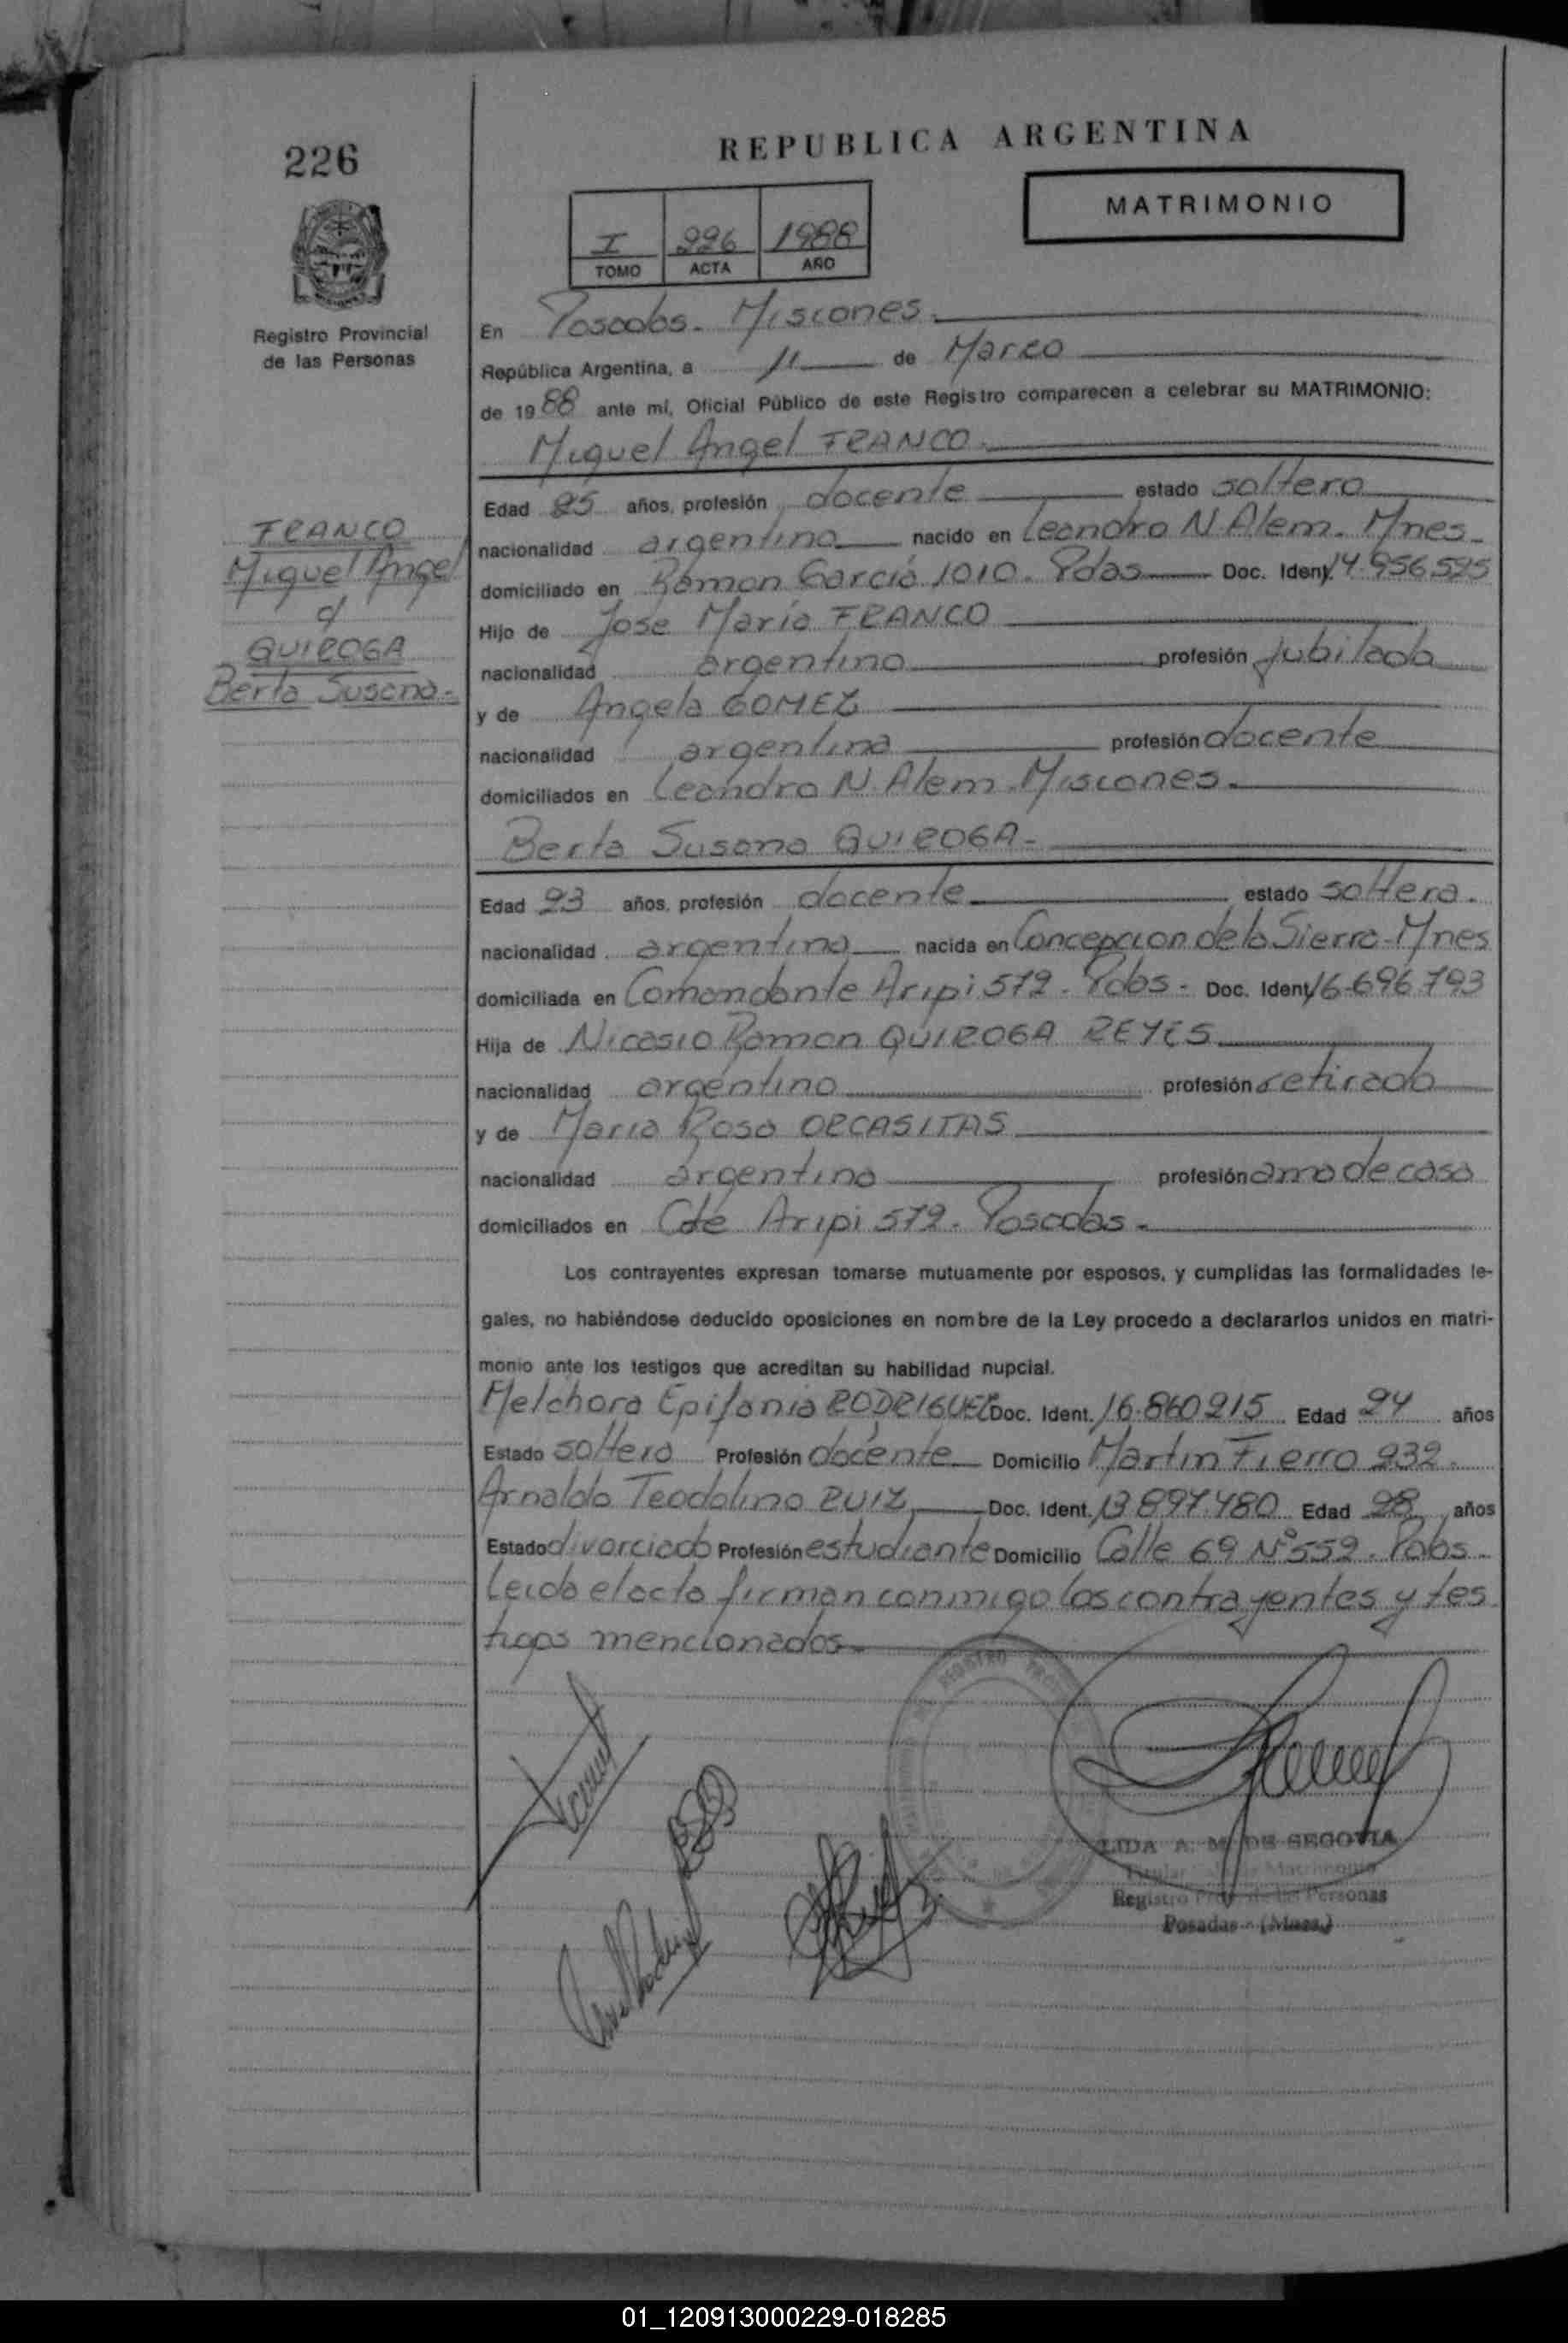 226
Registro Provincial
de las Personas
FRANCO
Miguel Angel
c/
QUIROGA
Berta Susana.-
REPUBLICA ARGENTINA
MATRIMONIO
I 226 1988
TOMO ACTA AÑO
En Posadas. Misiones.
República Argentina, a 11 de Marzo
de 1988 ante mí, Oficial Público de este Registro comparecen a celebrar su MATRIMONIO:
Miguel Angel FRANCO.
Edad 25 años, profesión docente estado soltero
nacionalidad argentino nacido en Leandro N. Alem. Mnes.
domiciliado en Ramon Garcia 1010. Pdas Doc. Ident. 14.956.525
Hijo de Jose Maria FRANCO
nacionalidad argentino profesión jubilado
y de Angela GOMEZ
nacionalidad argentina profesión docente
domiciliados en Leandro N. Alem. Misiones.
Berta Susana QUIROGA-
Edad 23 años, profesión docente estado soltera.
nacionalidad argentina nacida en Concepcion de la Sierra-Mnes
domiciliada en Comandante Aripi 572. Pdas- Doc. Ident. 16.696.793
Hija de Nicasio Ramon QUIROGA REYES
nacionalidad argentino profesión retirado
y de Maria Rosa ORCASITAS
nacionalidad argentina profesión ama de casa
domiciliados en Cdte Aripi 572. Posadas.
Los contrayentes expresan tomarse mutuamente por esposos, y cumplidas las formalidades le-
gales, no habiéndose deducido oposiciones en nombre de la Ley procedo a declararlos unidos en matri-
monio ante los testigos que acreditan su habilidad nupcial.
Melchora Epifania RODRIGUEZ Doc. Ident. 16.860.215 Edad 24 años
Estado soltera Profesión docente Domicilio Martin Fierro 232.
Arnaldo Teodolino RUIZ Doc. Ident. 13.897.480 Edad 28 años
Estado divorciado Profesión estudiante Domicilio Calle 69 Nº 559. Pdas.
Leida el acta firman conmigo los contrayentes y tes
tigos mencionados
LIDA A. M. DE SEGOVIA
Titular Matrimonio
Registro Prov. de las Personas
Posadas - (Mnes.)
01_120913000229-018285